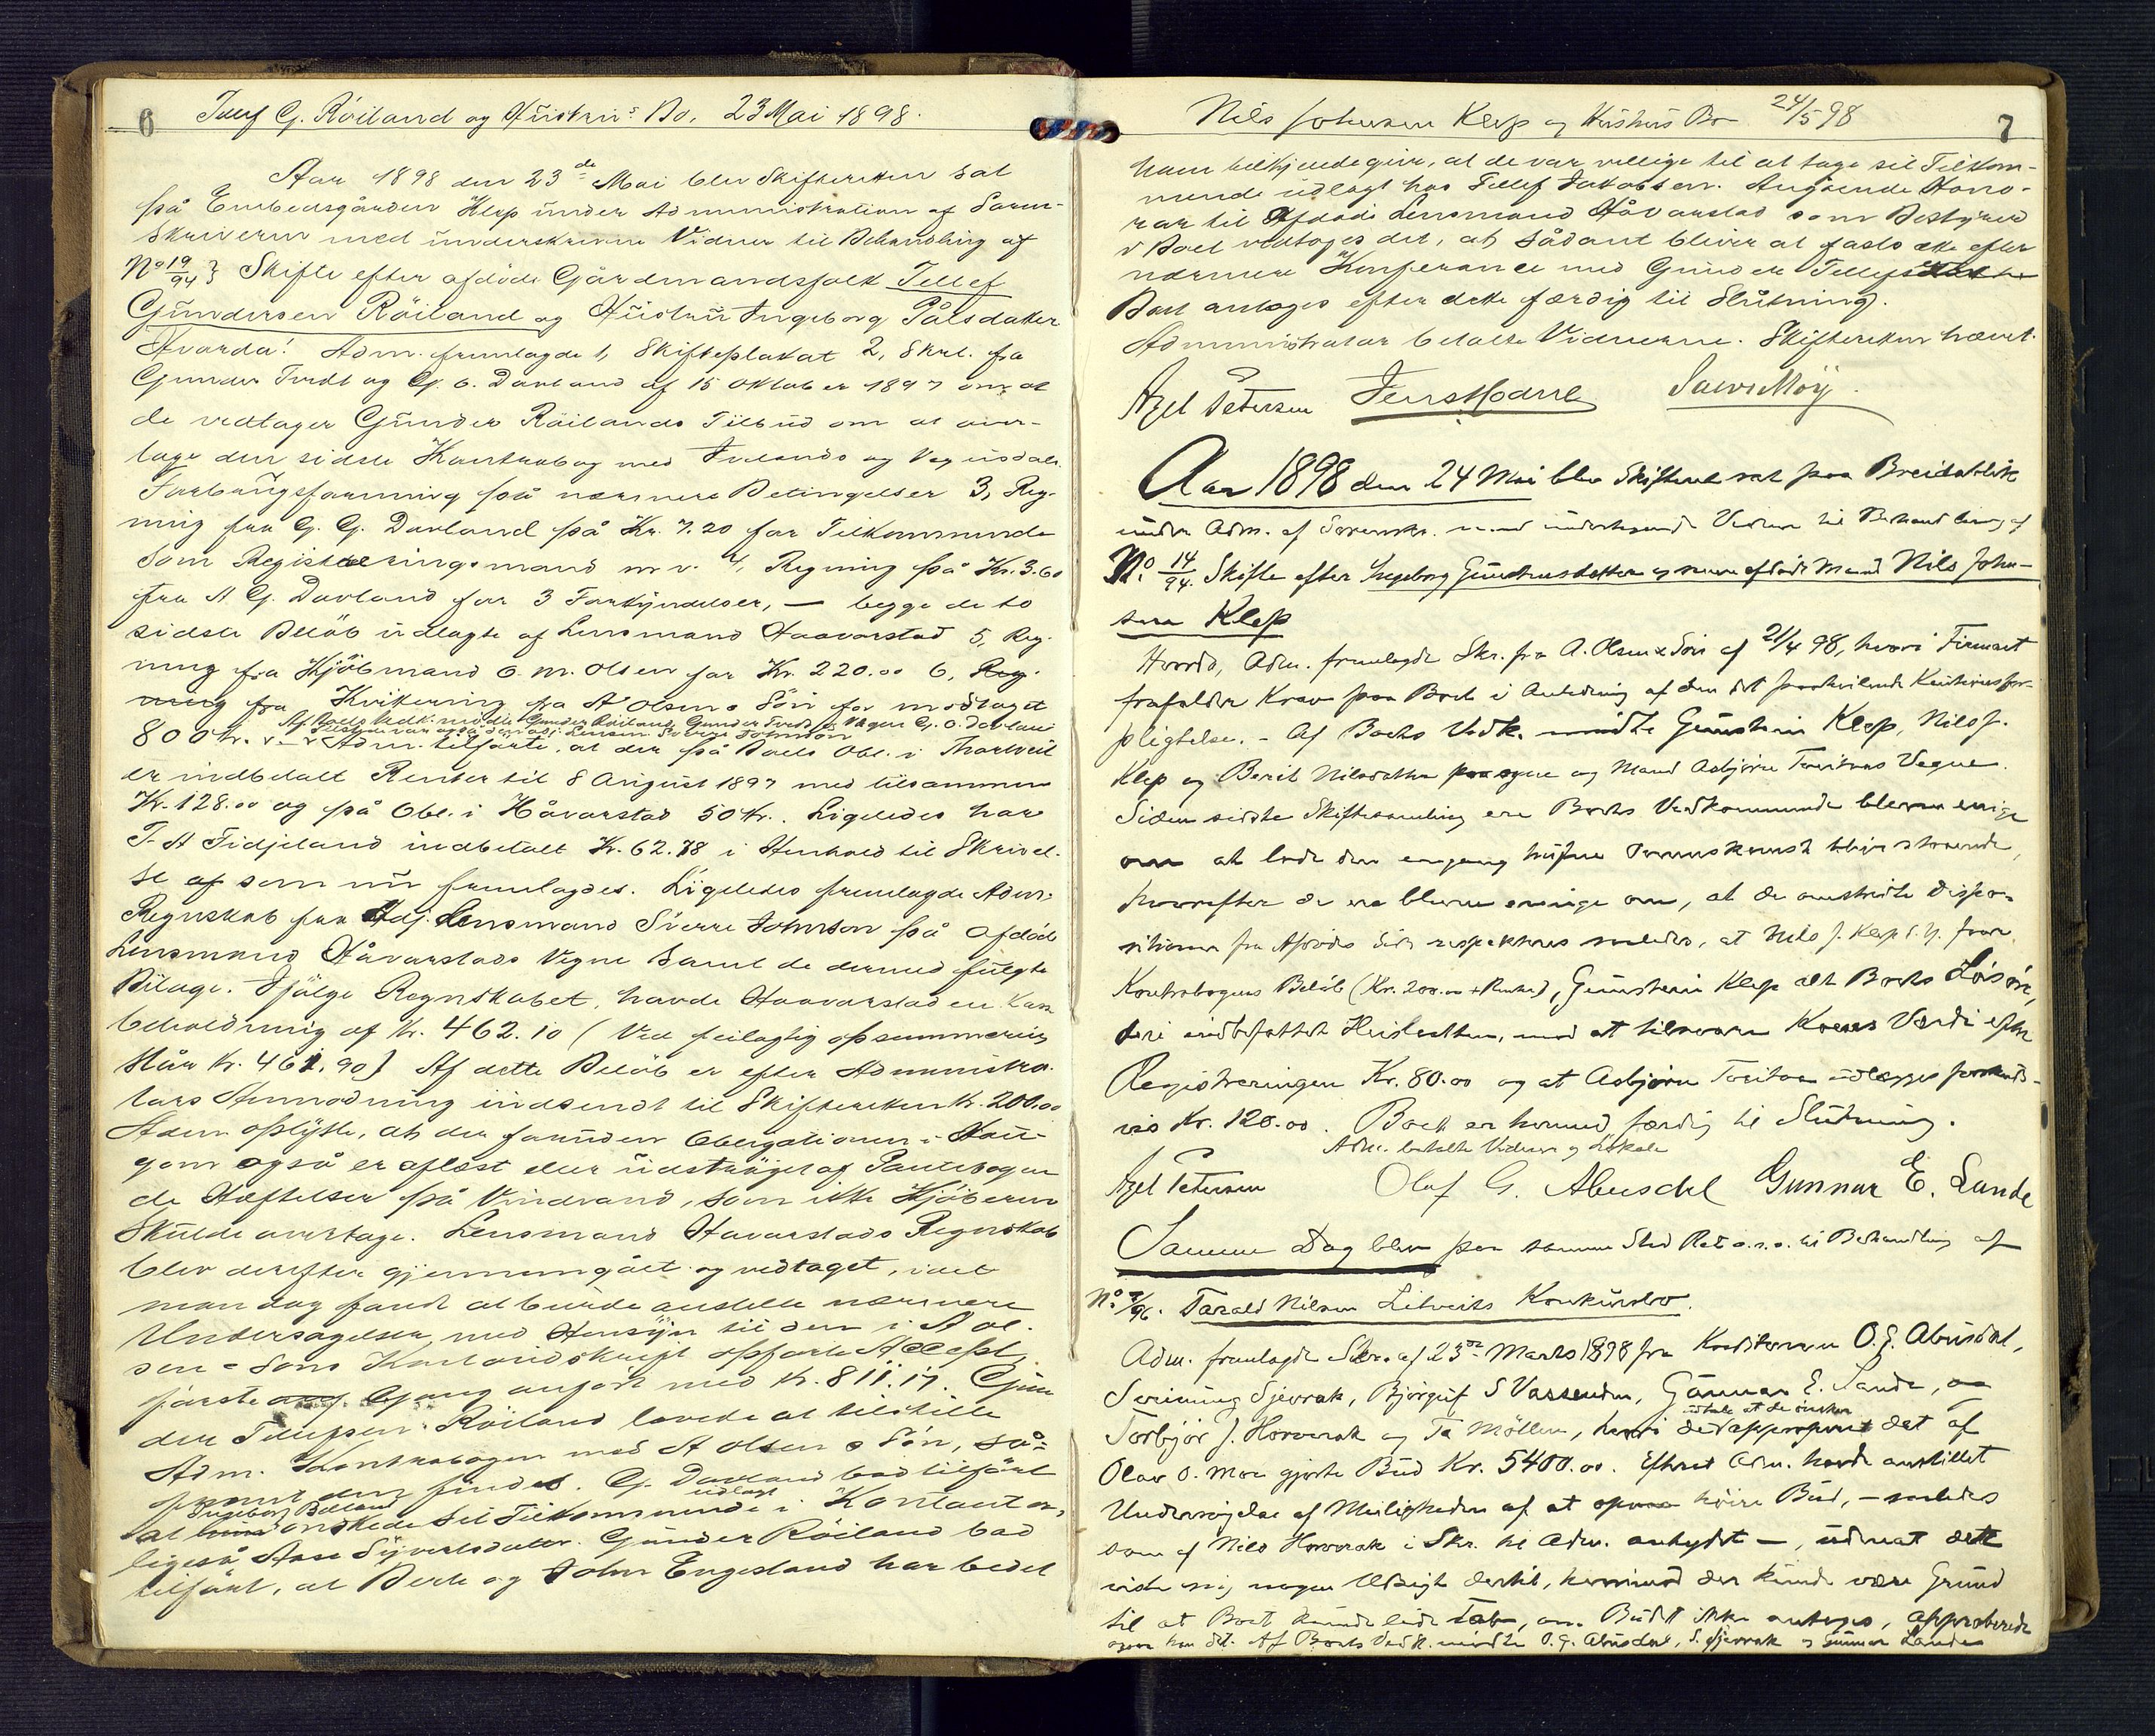 6
Tellef G. Röiland og Hüstrüs Bo. 23 Mai 1898.
Aar 1898 den 23de Mai blev Skifteretten sat
på Embedsgården Klep ünder Administration af Soren-
skriveren med ünderskrevne Vidner til Behandling af
No 19/94} Skifte efter afdöde Gårdmandsfolk Tellef
Gündersen Röiland og Hüstrü Ingeborg Pålsdatter
Hvorda! Adm. fremlagde 1, Skifteplakat 2, Skrl. fra
Gunder Tredt og G. O. Dovland af 15 Oktober 1897 om at
de vedtager Günder Röilands Tilbüd om at over-
tage den sidste Kontrabog med
paa nærmere Betingelser 3, Reg-
ning fra G. G. Dovland på Kr. 7.20 for Tilkommende
som Registreringsmand m.v. 4, Regning på Kr. 3.60
fra A G. Dovland for 3 Forkyndelser, — begge de to
sidste Belöb üdlagte af Lensmand Haavorstad 5, Reg-
ning fra Kjöbmand O. M. Olsen for Kr. 220.00 6, Reg-
ning fra Kvittering fra A Olsen & Sön for modtaget
Af Boets Vedk. mödte Gunder Röiland, Gunder Tredt og Vegne G. O. Dovland
Tilstede var også den adj. Lensm. Sverre Johnson
800 Kr. Adm. tilförte, at der på Boets Obl. i
er indbetalt Renter til 8 Aügüst 1897 med tilsammen
Kr. 128.00 og på Obl. i Håvorstad 50 Kr. Ligeledes har
T. A Fidjeland indbetalt Kr. 62.78 i Henhold til Skrivel-
se af som nü fremlagdes. Ligeledes fremlagde Adm.
Regnskab fra Adj. Lensmand Sverre Johnson på afdöde
Lensmand Håvorstads Vegne samt de dermed fülgte
Bilage. Ifjölge Regnskabet, havde Haavorstad en Kasse-
beholdning af Kr. 462.10 (Ved feilagtig opsummering
står Kr. 461.90) Af dette Belöb er efter Administra-
tors Anmodning indsendt til Skifteretten Kr. 200.00
Adm oplyste, at der foruden Obligationen i Haü-
gom også er aflæst eller üdströget af Pantebogen
de Hæftelser på Vindland, som ikke Kjöberen
Skülde overtage. Lensmand Haavorstads Regnskab
blev derefter gjennemgået og vedtaget, idet
man dog fandt at bürde anstille nærmere
Undersögelser, med Hensÿn til den i A Ol-
sen & Söns Kontoudskrift opförte Accept,
förste Gang anfört med Kr. 811.17. Gün-
der Tellefsen Röiland lovede at tilstille
Adm. Kontrabogen med A Olsen & Sön, så-
fremt den findes. G. Dovland bad tilfört
Ingeborg Dolland udlagt
at önskede sit Tilkommende i Kontanter,
ligeså Aase Syvertsdatter. Günder Röiland bad
tilfört, at Berte og John Engesland har bedet
7
Nils Johnsen Klep og Hüstrüs Bo 24/5 98
ham tilkjendegive, at de var villige til at tage sit Tilkom-
mende üdlagt hos Tellef Jakobsen. Angående Hono-
rar til Afdöde Lensmand Håvorstad som Bestyrer
i Boet vedtoges det, at sådant bliver at fastsætte efter
nærmere Konferance med Günder Tellefsen
Boet antages efter dette færdig til Slütning.
Administrator betalte Vidnerne. Skifteretten hævet.
Axel Petersen
Aar 1898 den 24 Mai blev Skifteret sat paa Breidablik
under Adm. af Sorenskr. med undertegnede Vidner til Behandling af
No. 14/94. Skifte efter Ingeborg Günstensdatter og senere afdöde Mand Nils John-
sen Klep
Hvorda, Adm. fremlagde Skr. fra A. Olsen & Sön af 21/4 98, hvori Firmaet
frafalder Krav paa Boet i Anledning af den det paahvilende Kautionsfor-
pligtelse. - Af Boets Vedk. mödte Günstein Klep, Nils J.
Klep og Berit Nilsdatter paa egne og Mand Asbjörn Vegne.
Siden sidste Skiftesamling ere Boets Vedkommende bleven enige
om at lade den engang trüfne Overenskomst blive staaende,
hvorefter de ere blevne enige om, at de omstridte Dispo-
sitioner fra Afdödes Side respekteres saaledes, at Nils J. Klep d. y. faar
Kontrabogens Belöb (Kr. 200.00 + Renter), Günstein Klep alt Boets Lösöre,
deri indbefattet Heirletten, mod at tilsvare Koens Værdi efter
Registreringen Kr. 80.00 og at Asbjörn udlægges forskuds-
vis Kr. 120.00. Boet er hermed færdig til Slütning.
Adm. betalte Vidner og Lokale
Axel Petersen Olaf G. Abusdal Gunnar E. Lande
Samme Dag blev paa samme Sted Ret o.s.v. til Behandling af
No. 7/96. Tarald Nilsen Litveits Konkürsbo.
Adm. fremlagde Skr. af 23de Marts 1898 fra Kreditorerne O. G. Abüsdal,
Sevrak, Bjorgüf S Vassenden, Günnar E. Lande, og
udtale at de önsker
Torbjör J. Horverak og Ta Möllen, hvori det af
Olav O. Moe gjorte Büd Kr. 5400.00. Efterat Adm. havde anstillet
Undersögelse af Müligheden af at opnaa höiere Büd, – saaledes
som af Nils Horverak i Skr. til Adm. antydet –, üdenat dette
viste sig nogen Udsigt dertil, hvorimod der künde være Gründ
til at Boet künde lide Tab, om Büdet ikke antoges, approberede
ogsaa han det. Af Boets Vedk. mödte O. G. Abüsdal, S. Sjevrak og Günnar Lande